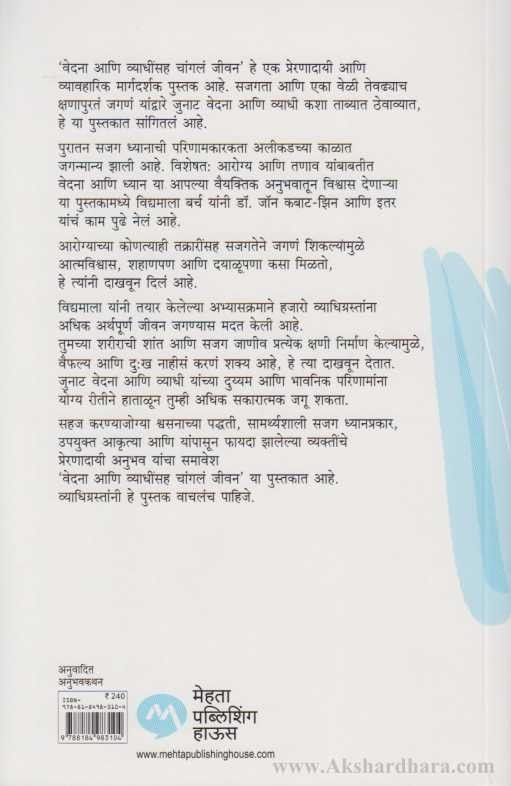 ‘वेदना आणि व्याधींसह चांगलं जीवन’ हे एक प्रेरणादायी आणि
व्यावहारिक मार्गदर्शक पुस्तक आहे. सजगता आणि एका वेळी तेवढ्याच
क्षणापुरतं जगणं यांद्वारे जुनाट वेदना आणि व्याधी कशा ताब्यात ठेवाव्यात,
हे या पुस्तकात सांगितलं आहे.
पुरातन सजग ध्यानाची परिणामकारकता अलीकडच्या काळात
जगन्मान्य झाली आहे. विशेषत: आरोग्य आणि तणाव यांबाबतीत
वेदना आणि ध्यान या आपल्या वैयक्तिक अनुभवातून विश्वास देणाऱ्या
या पुस्तकामध्ये विद्यमाला बर्च यांनी डॉ. जॉन कबाट-झिन आणि इतर
यांचं काम पुढे नेलं आहे.
आरोग्याच्या कोणत्याही तक्रारींसह सजगतेने जगणं शिकल्यामुळे
आत्मविश्वास, शहाणपण आणि दयाळूपणा कसा मिळतो,
हे त्यांनी दाखवून दिलं आहे.
विद्यमाला यांनी तयार केलेल्या अभ्यासक्रमाने हजारो व्याधिग्रस्तांना
अधिक अर्थपूर्ण जीवन जगण्यास मदत केली आहे.
तुमच्या शरीराची शांत आणि सजग जाणीव प्रत्येक क्षणी निर्माण केल्यामुळे,
वैफल्य आणि दु:ख नाहीसं करणं शक्य आहे, हे त्या दाखवून देतात.
जुनाट वेदना आणि व्याधी यांच्या दुय्यम आणि भावनिक परिणामांना
योग्य रीतीने हाताळून तुम्ही अधिक सकारात्मक जगू शकता.
सहज करण्याजोग्या श्वसनाच्या पद्धती, सामर्थ्यशाली सजग ध्यानप्रकार,
उपयुक्त आकृत्या आणि यांपासून फायदा झालेल्या व्यक्तींचे
प्रेरणादायी अनुभव यांचा समावेश
‘वेदना आणि व्याधींसह चांगलं जीवन’ या पुस्तकात आहे.
व्याधिग्रस्तांनी हे पुस्तक वाचलंच पाहिजे.
अनुवादित
अनुभवकथन
ISBN-
₹ 240
978-81-8498-310-4
9788184983104
मेहता
पब्लिशिंग
हाऊस
www.mehtapublishinghouse.com
www.Akshardhara.com